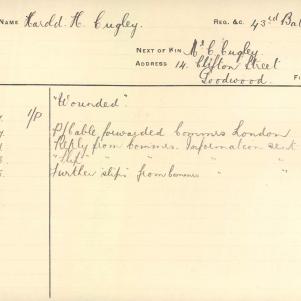 NAME Harold H. Cugley. REG. &C. 43rd Bat
NEXT OF KIN Mr C. Cugley.
ADDRESS 14. Clifton Street
Goodwood.
"Wounded".
1/P Cable forwarded Commrs London
Reply from Commrs. Information sent
"Slip" " "
Further slips from Commrs "